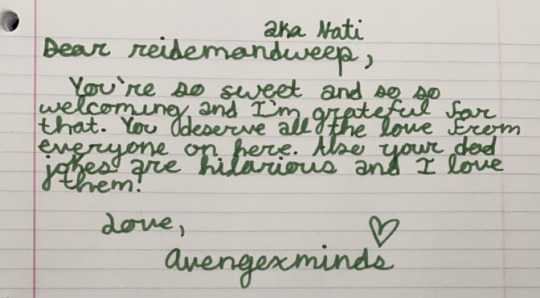 aka Nati
Dear reidemandweep,
You're so sweet and so so
welcoming and I'm grateful for
that. You deserve all the love from
everyone on here. Also your dad
jokes are hilarious and I love
them!
Love,
avengexminds